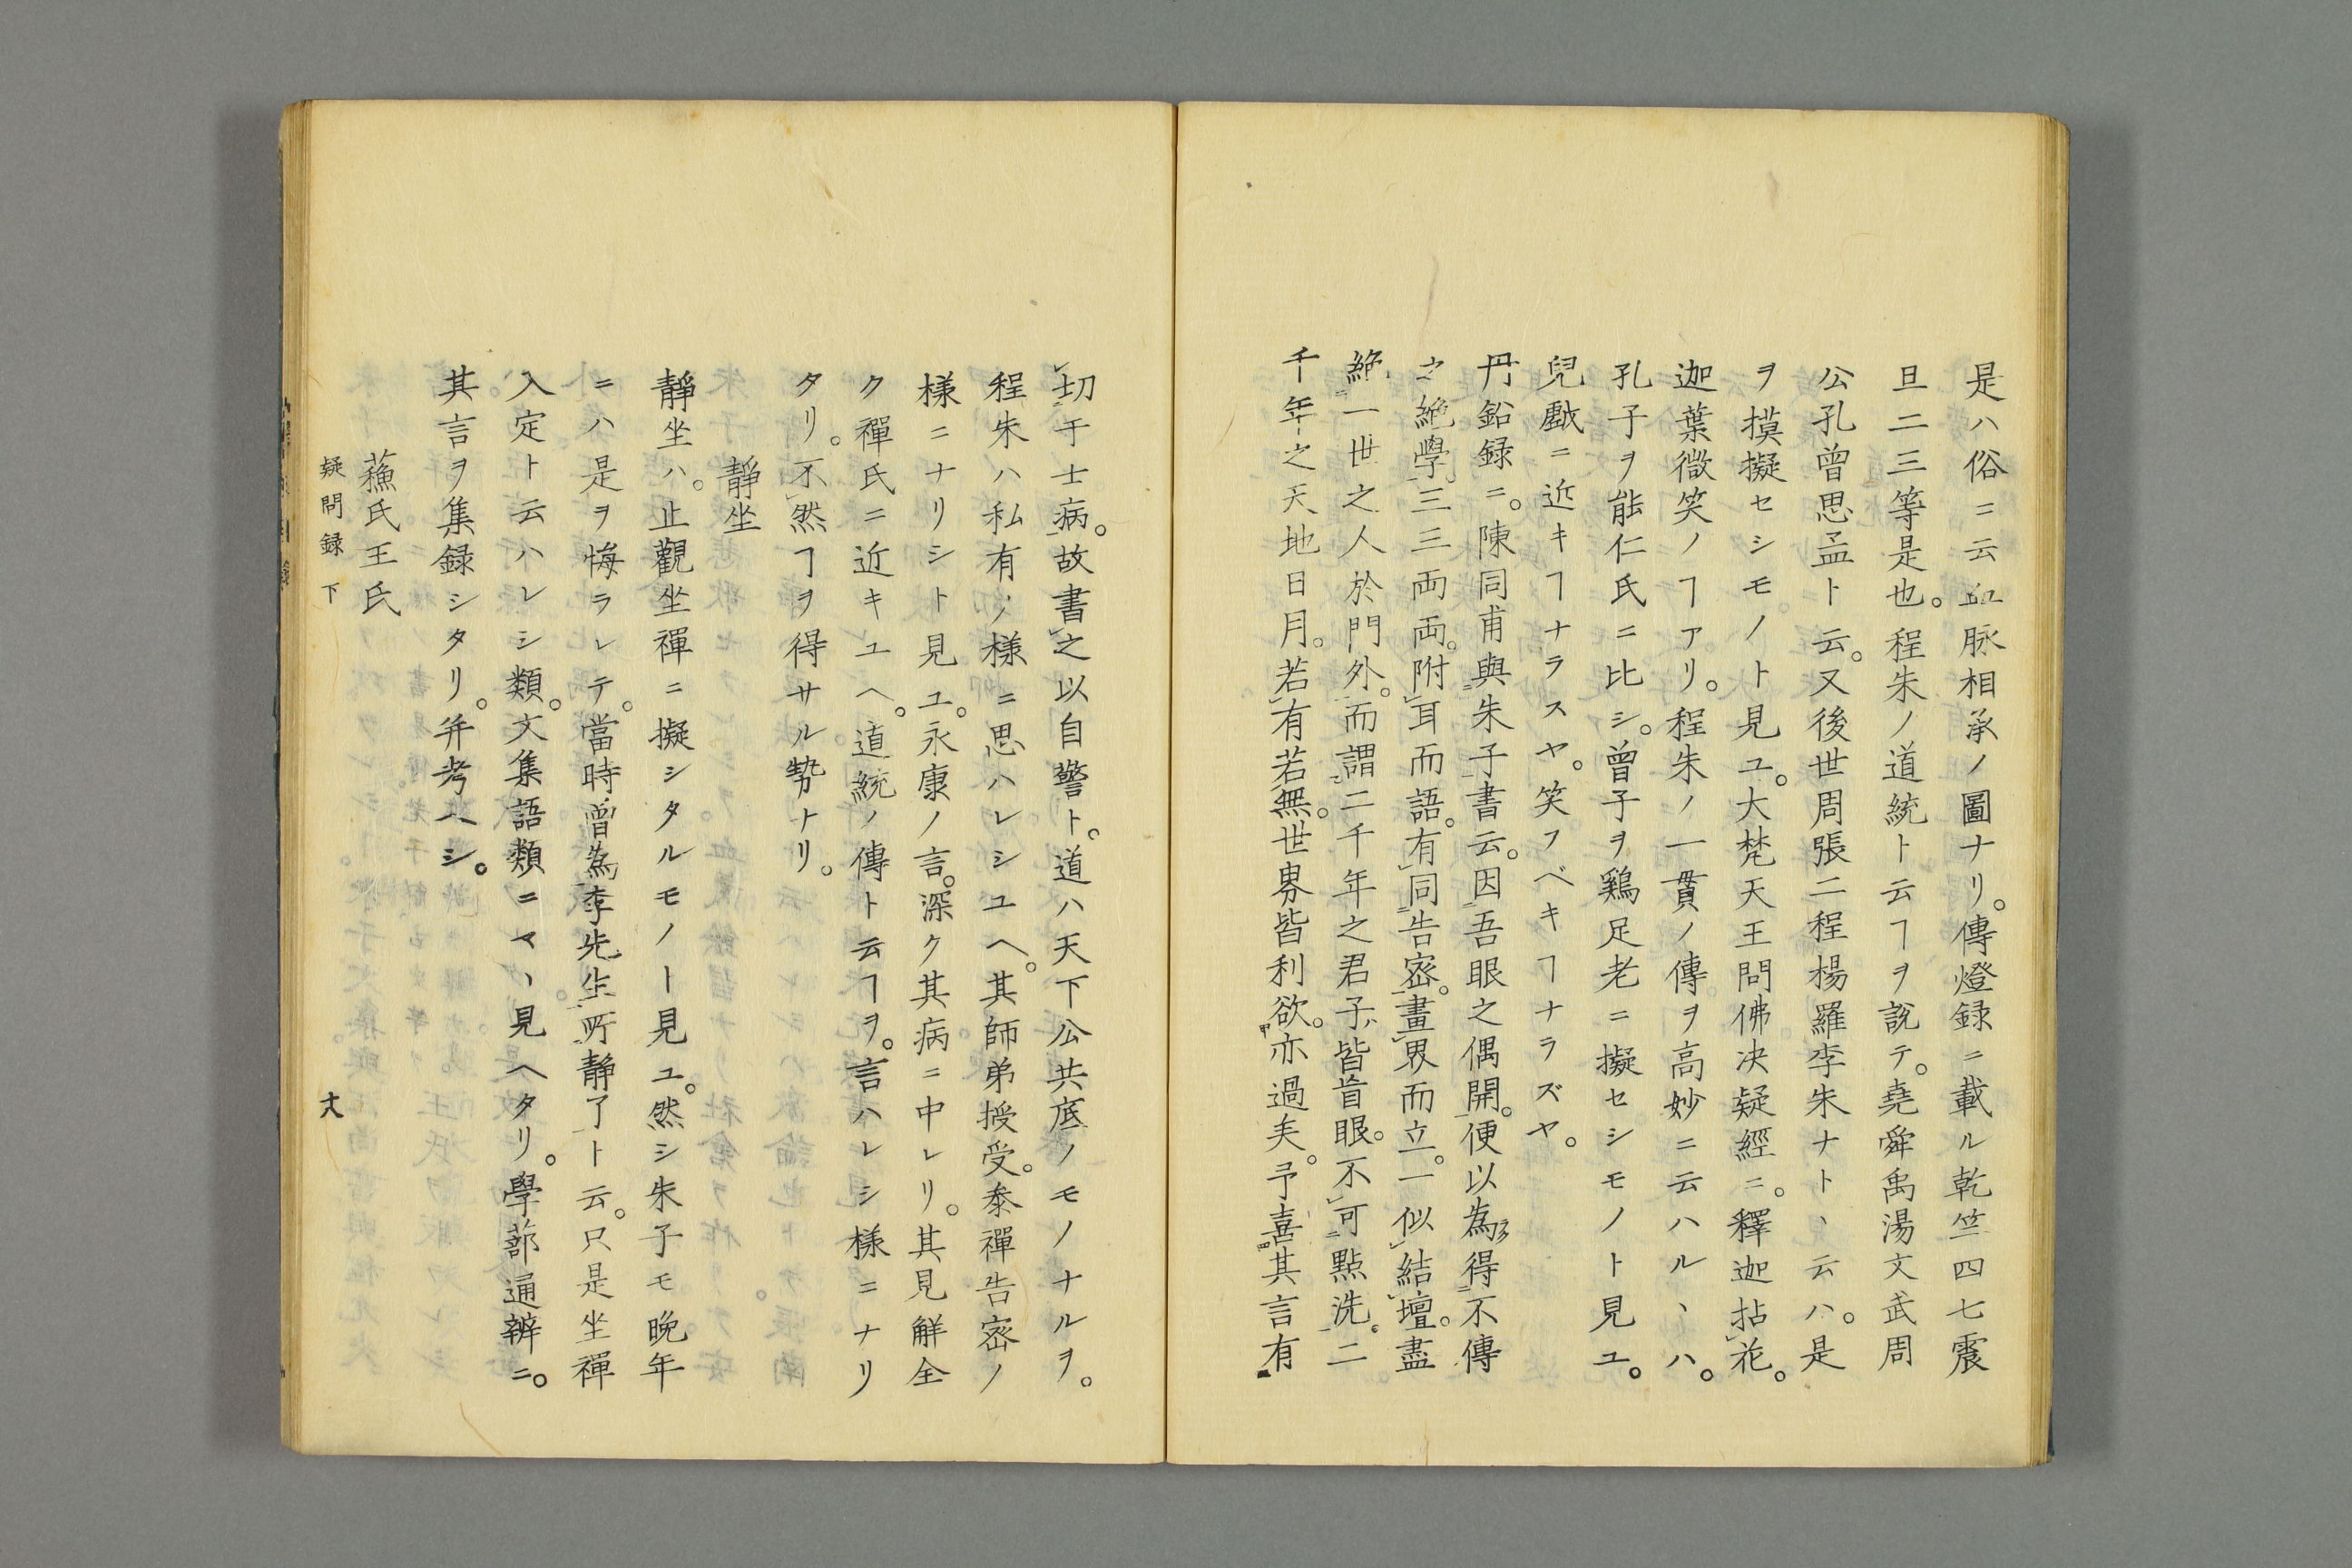 是ハ俗ニ云血脉相承ノ圖ナリ。傳燈録ニ載ル乾竺四七震
旦二三等是也。程朱ノ道統ト云ヿヲ說テ。堯舜禹湯文武周
公孔曾思孟ト云。又後世周張二程楊羅李朱ナト丶云ハ。是
ヲ摸擬セシモノト見ユ。大梵天王問佛决疑經ニ。釋迦拈花。
迦葉微笑ノヿアリ。程朱ノ一貫ノ傳ヲ高妙ニ云ハル丶ハ。
孔子ヲ能仁氏ニ比シ。曾子ヲ鷄足老ニ擬セシモノト見ユ。
兒戯ニ近キヿナラスヤ。笑フベキヿナラズヤ。
丹鉛録ニ。陳同甫與朱子書云。因吾眼之偶開。便以為得不傳
之絶學。三三両両。附耳而語。有同告宻。畫界而立。一似結壇。盡
絶一世之人於門外。而謂二千年之君子皆盲眼。不可點洗。二
千年之天地日月。若有若無。世畍皆利欲。亦過矣。予喜其言有
切于士病。故書之以自警ト。道ハ天下公共底ノモノナルヲ。
程朱ハ私有ノ様ニ思ハレシユヘ。其師弟授受。叅禪告宻ノ
様ニナリシト見ユ。永康ノ言。深ク其病ニ中レリ。其見解全
ク禪氏ニ近キユヘ。道統ノ傳ト云ヿヲ。言ハレシ様ニナリ
タリ。不然ヿヲ得サル勢ナリ。
静坐
静坐ハ。止觀坐禪ニ擬シタルモノト見ユ。然シ朱子モ晚年
ニハ是ヲ悔ラレテ。當時曾為李先生所静了ト云。只是坐禪
入定ト云ハレシ類。文集語類ニマ丶見ヘタリ。學蔀通辨ニ。
其言ヲ集録シタリ。并考ヘシ。
蘓氏王氏
疑問録 下 十八